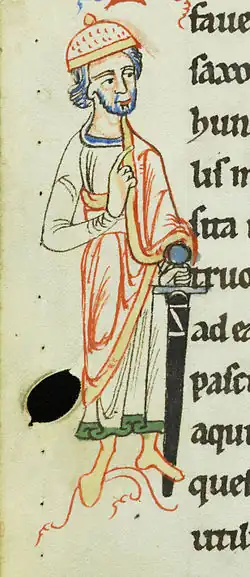 faue
ſaxo
hun
liſ m
ſita
truo
ad ea
paſc
aqui
queſ
utili